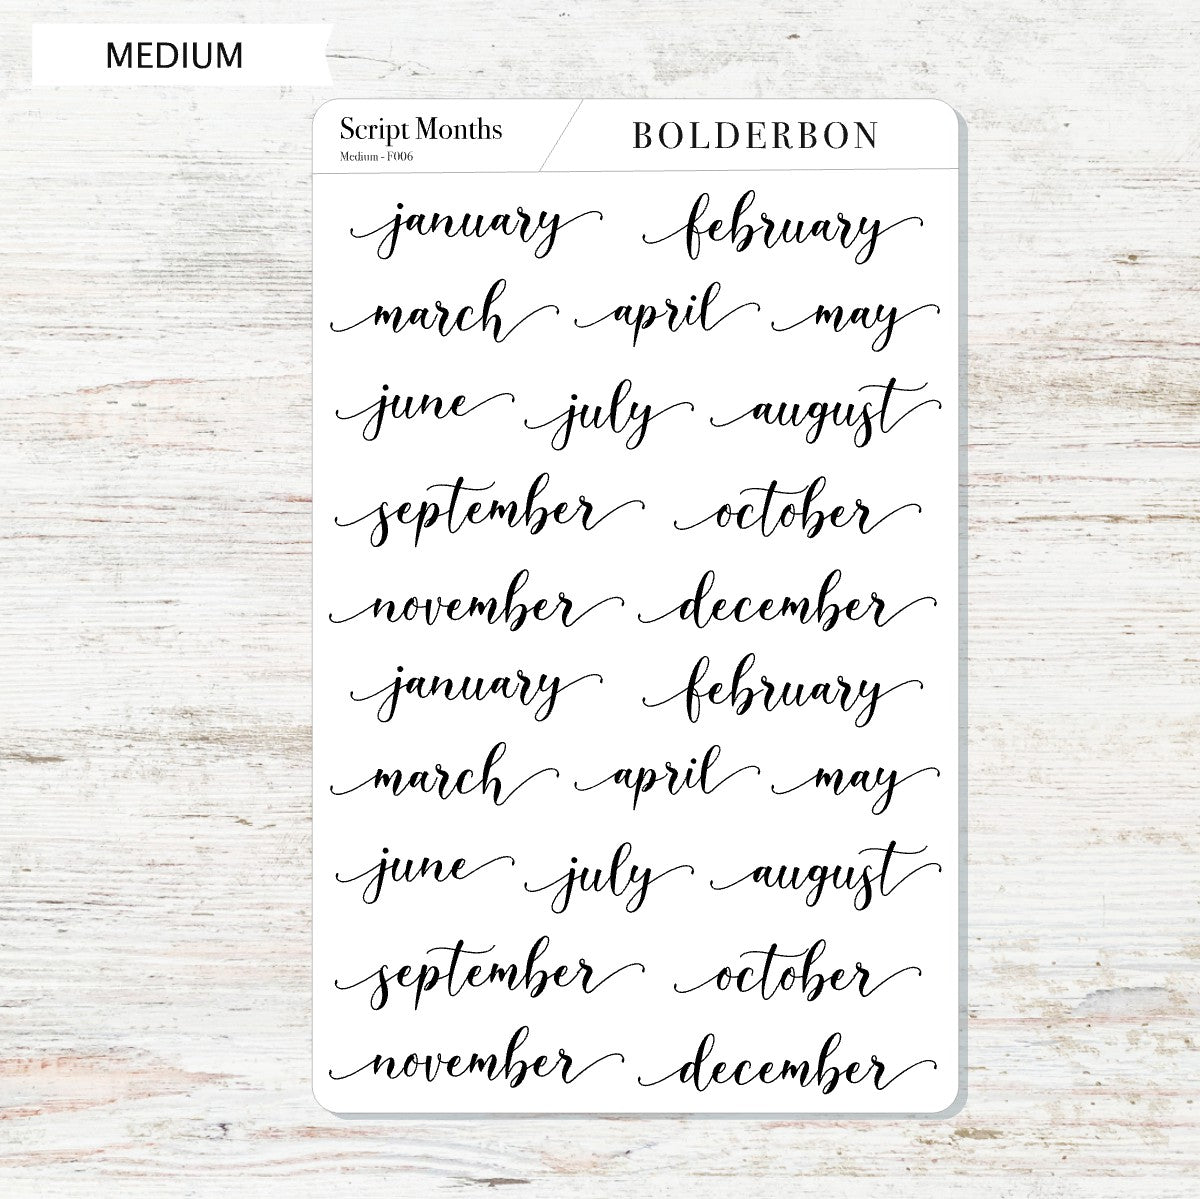 MEDIUM
Script Months BOLDERBON
Medium - F006
january february
march april may
june july august
september october
november december
january february
march april may
june july august
september october
november december